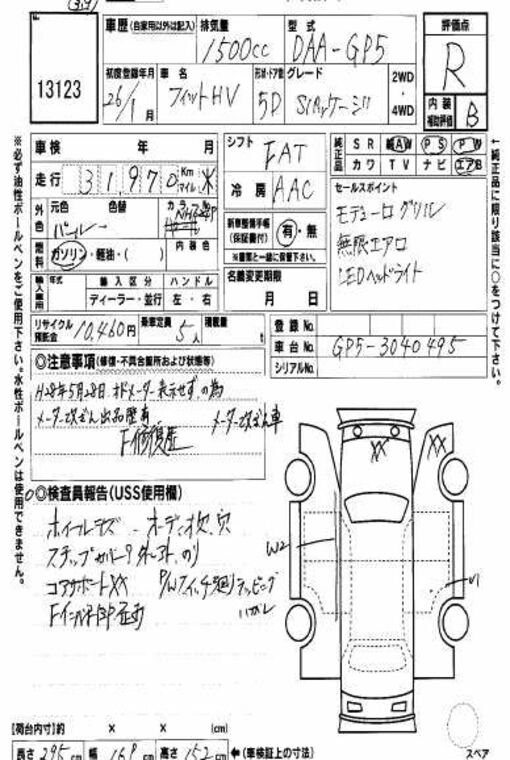 13123
車歴 (自家用以外は記入)
排気量
1500cc
型式
DAA-GP5
評価点
R
内装補助評価
B
初度登録年月
26/1月
車名
フィットHV
形状・ドア数
5D
グレード
Sパッケージ
2WD
4WD
車検 年 月
走行 31,970 Km マイル
シフト
FAT
冷房
AAC
純正品
SR AW PS PW
カワ TV ナビ エアB
セールスポイント
モデューログリル
無限エアロ
LEDヘッドライト
外色
元色
パール
色替
カラーNo.
燃料
ガソリン・軽油・( )
内装色
新車整備手帳(保証書付)
有・無
※書類と一緒に保管下さい。
輸入車用
年式
輸入区分
ディーラー・並行
ハンドル
左・右
名義変更期限
月 日
リサイクル預託金
10,460円
乗車定員
5人
積載量
t
登録No.
車台No.
GP5-3040495
シリアルNo.
◎注意事項 (修復・不具合箇所および状態等)
H28年5月28日オドメーター表示せずの為
メーター改ざん出品歴有
メーター改ざん車
F修復歴
◎検査員報告(USS使用欄)
ホイールキズ オーディオ欠、穴
ステップカバー
コアサポートXX P/Wスイッチ廻りラッピング
ハガレ
XX
XX
W2
U1
スペア
【荷台内寸】約 × × (cm)
長さ 295 cm 幅 169 cm 高さ 152 cm
←(車検証上の寸法)
※必ず油性ボールペンをご使用下さい。水性ボールペンは使用できません。
←純正品に限り該当に○をつけて下さい。